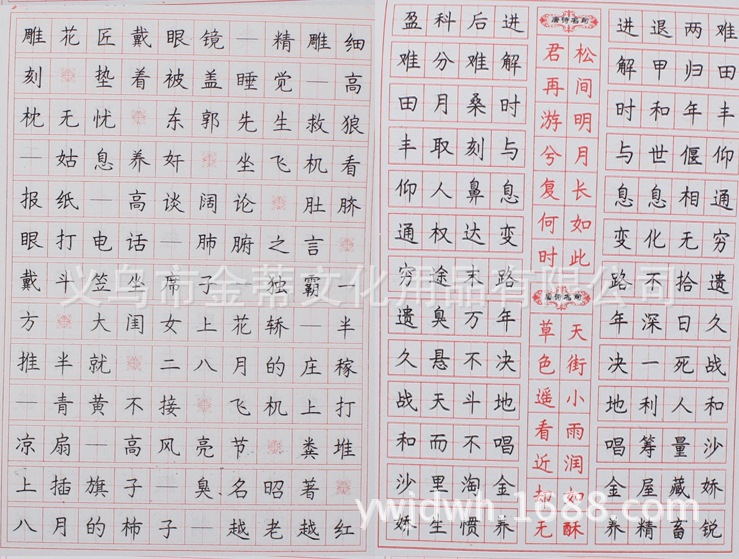 雕花匠戴眼镜—精雕细
刻 垫着被盖睡觉—高
枕无忧 东郭先生救狼
—姑息养奸 坐飞机看
报纸—高谈阔论 肚脐
眼打电话—肺腑之言
戴斗笠坐席子—独霸一
方 大闺女上花轿—半
推半就 二八月的庄稼
—青黄不接 飞机上打
凉扇—高风亮节 粪堆
上插旗子—臭名昭著
八月的柿子—越老越红
盈科后进
难分难解
田月桑时
丰取刻与
仰人鼻息
通权达变
穷途末路
遗臭万年
久悬不决
战天斗地
和而不唱
沙里淘金
娇生惯养
唐诗名句
松间明月长如此
君再游兮复何时
唐诗名句
天街小雨润如酥
草色遥看近却无
进退两难
解甲归田
时和年丰
与世偃仰
息息相通
变化无穷
路不拾遗
年深日久
决一死战
地利人和
唱筹量沙
金屋藏娇
养精畜锐
义乌市金蒂文化用品有限公司
ywjdwh.1688.com